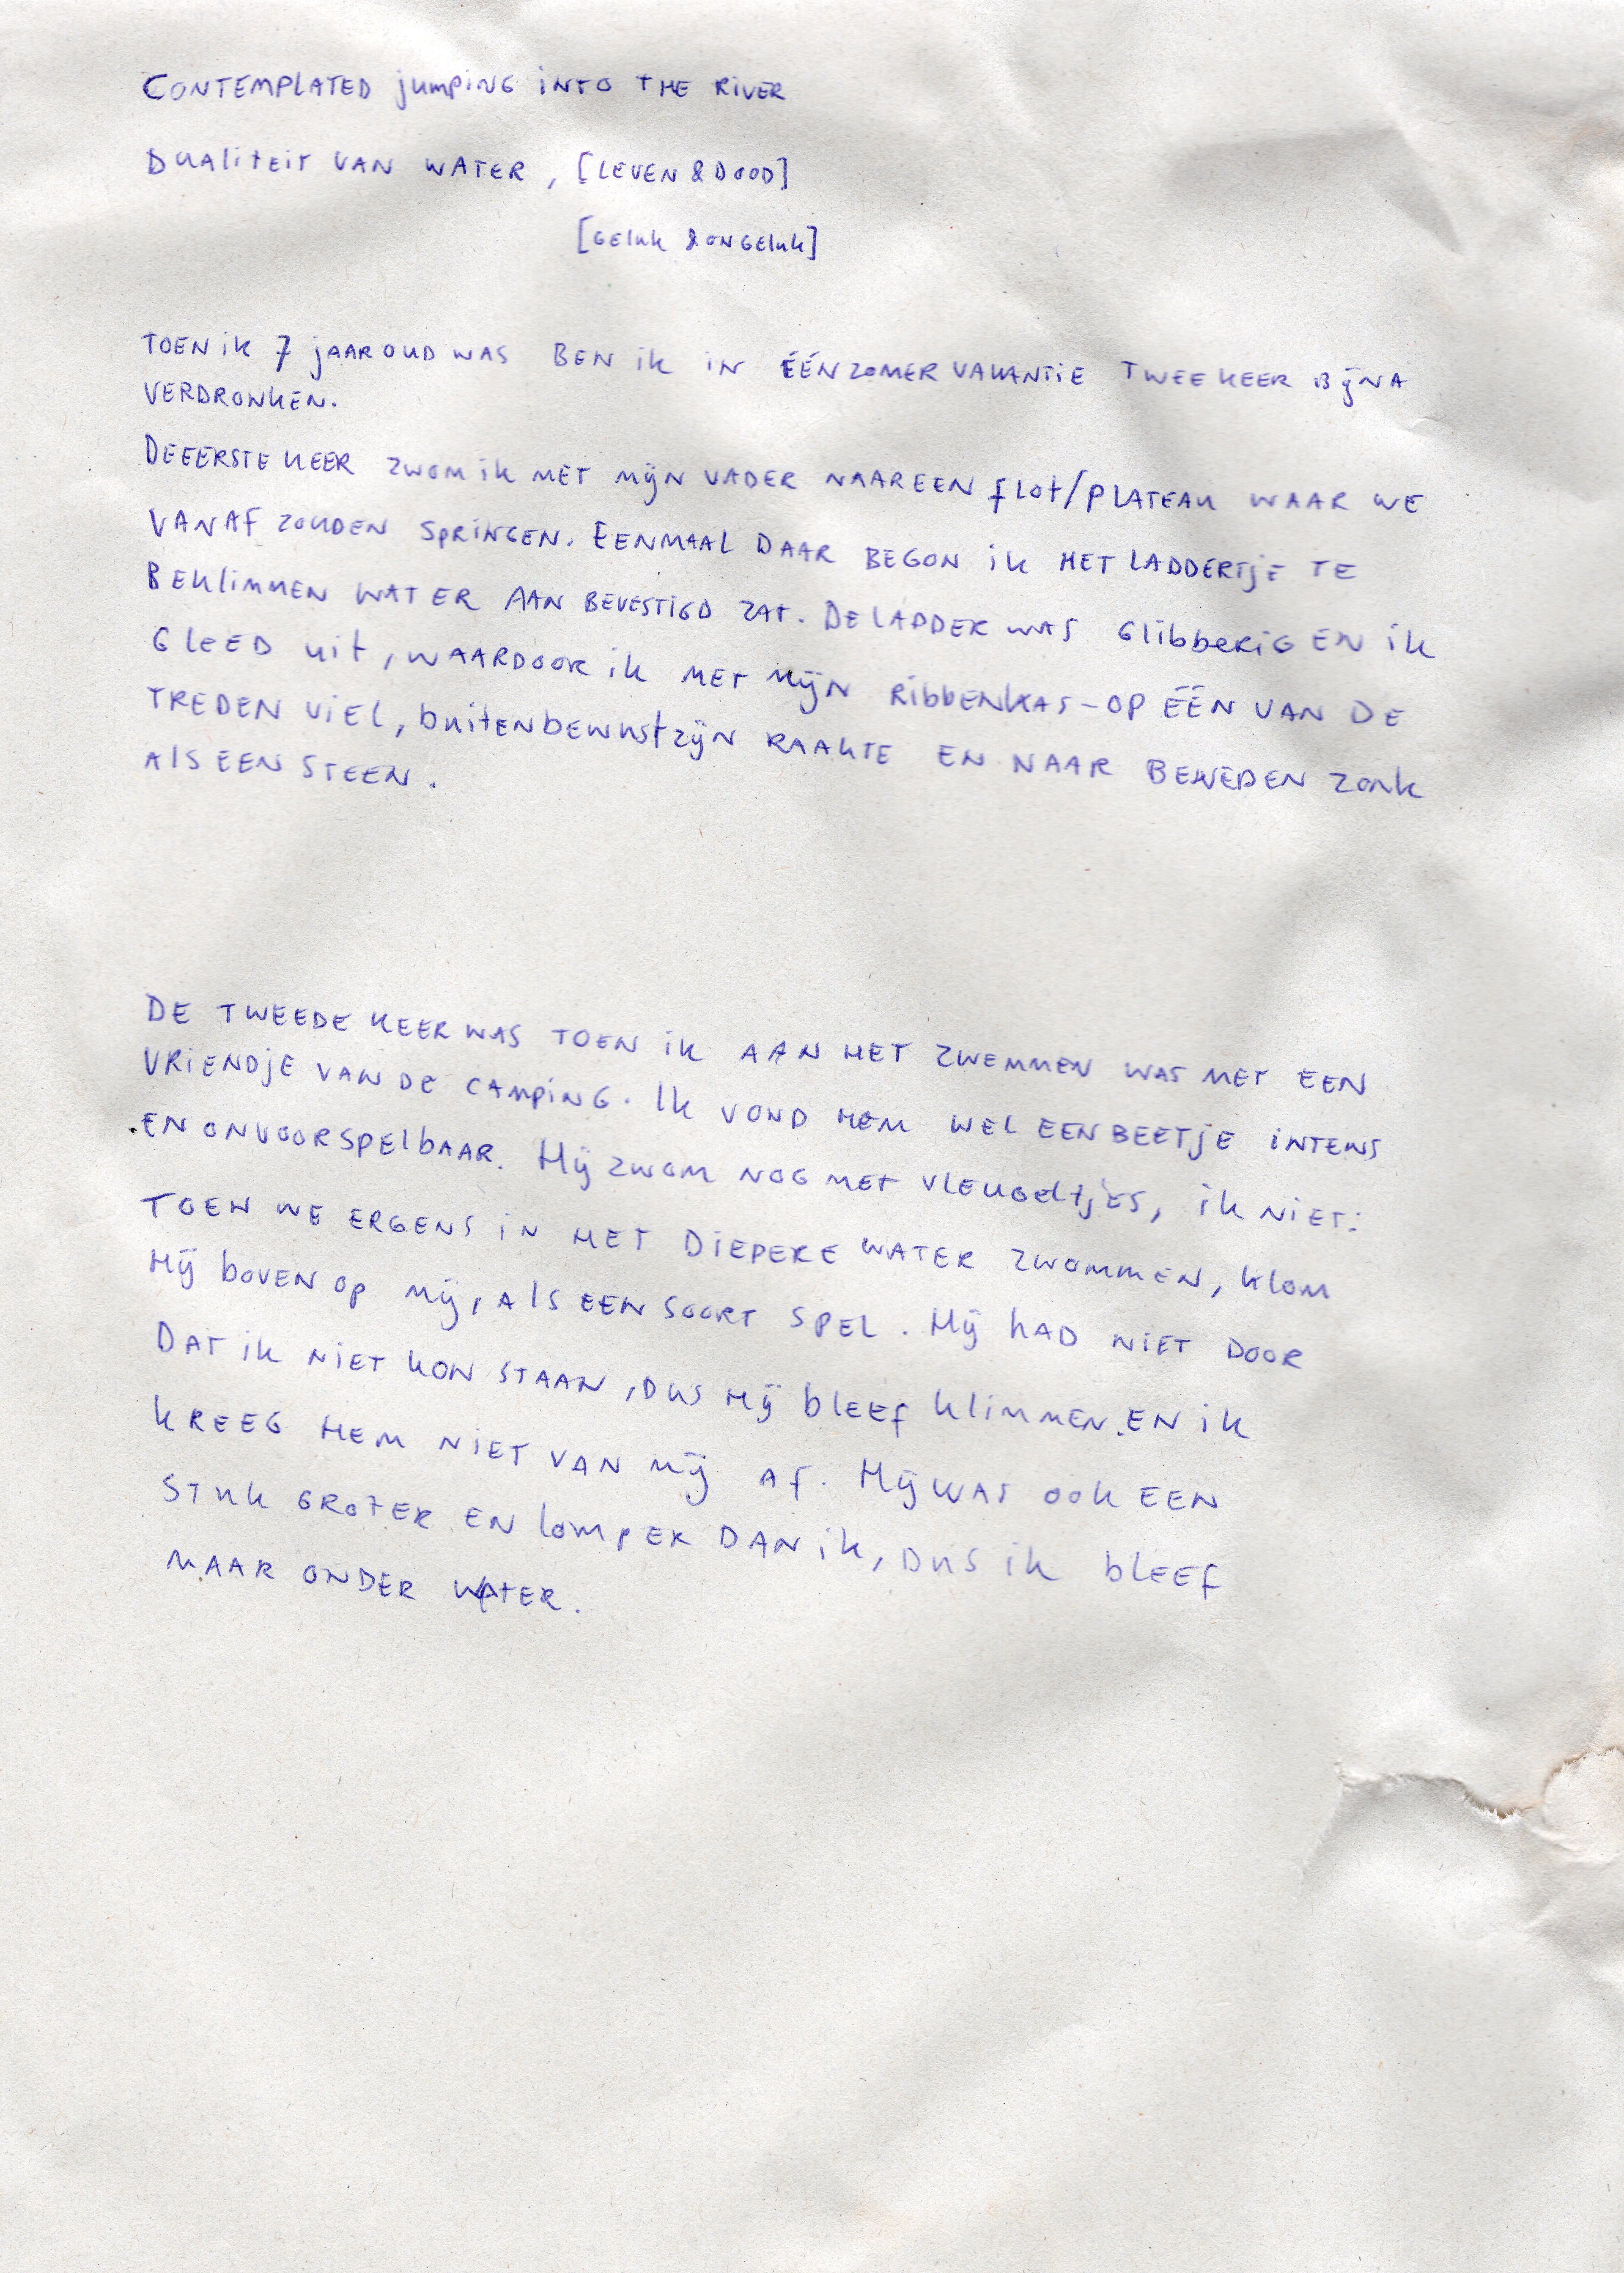 CONTEMPLATED jumpING INTO THE RIVER
DUALITEIT VAN WATER, [LEVEN & DOOD]
[GELUK & ONGELUK]
TOEN IK 7 JAAR OUD WAS BEN IK IN ÉÉN ZOMERVAKANTIE TWEE KEER BIJNA
VERDRONKEN.
DE EERSTE KEER ZWOM IK MET MIJN VADER NAAR EEN FLOT/PLATEAU WAAR WE
VANAF ZOUDEN SPRINGEN. EENMAAL DAAR BEGON IK HET LADDERTJE TE
BEKLIMMEN WAT ER AAN BEVESTIGD ZAT. DE LADDER WAS GLIBBERIG EN IK
GLEED UIT, WAARDOOR IK MET MIJN RIBBENKAS - OP ÉÉN VAN DE
TREDEN VIEL, BUITENBEWUSTZIJN RAAKTE EN NAAR BENEDEN ZONK
ALS EEN STEEN.
DE TWEEDE KEER WAS TOEN IK AAN HET ZWEMMEN WAS MET EEN
VRIENDJE VAN DE CAMPING. IK VOND HEM WEL EEN BEETJE INTENS
EN ONVOORSPELBAAR. HIJ ZWOM NOG MET VLEUGELTJES, IK NIET:
TOEN WE ERGENS IN HET DIEPERE WATER ZWOMMEN, KLOM
HIJ BOVEN OP MIJ, ALS EEN SOORT SPEL. HIJ HAD NIET DOOR
DAT IK NIET KON STAAN, DUS HIJ BLEEF KLIMMEN. EN IK
KREEG HEM NIET VAN MIJ AF. HIJ WAS OOK EEN
STUK GROTER EN LOMPER DAN IK, DUS IK BLEEF
MAAR ONDER WATER.